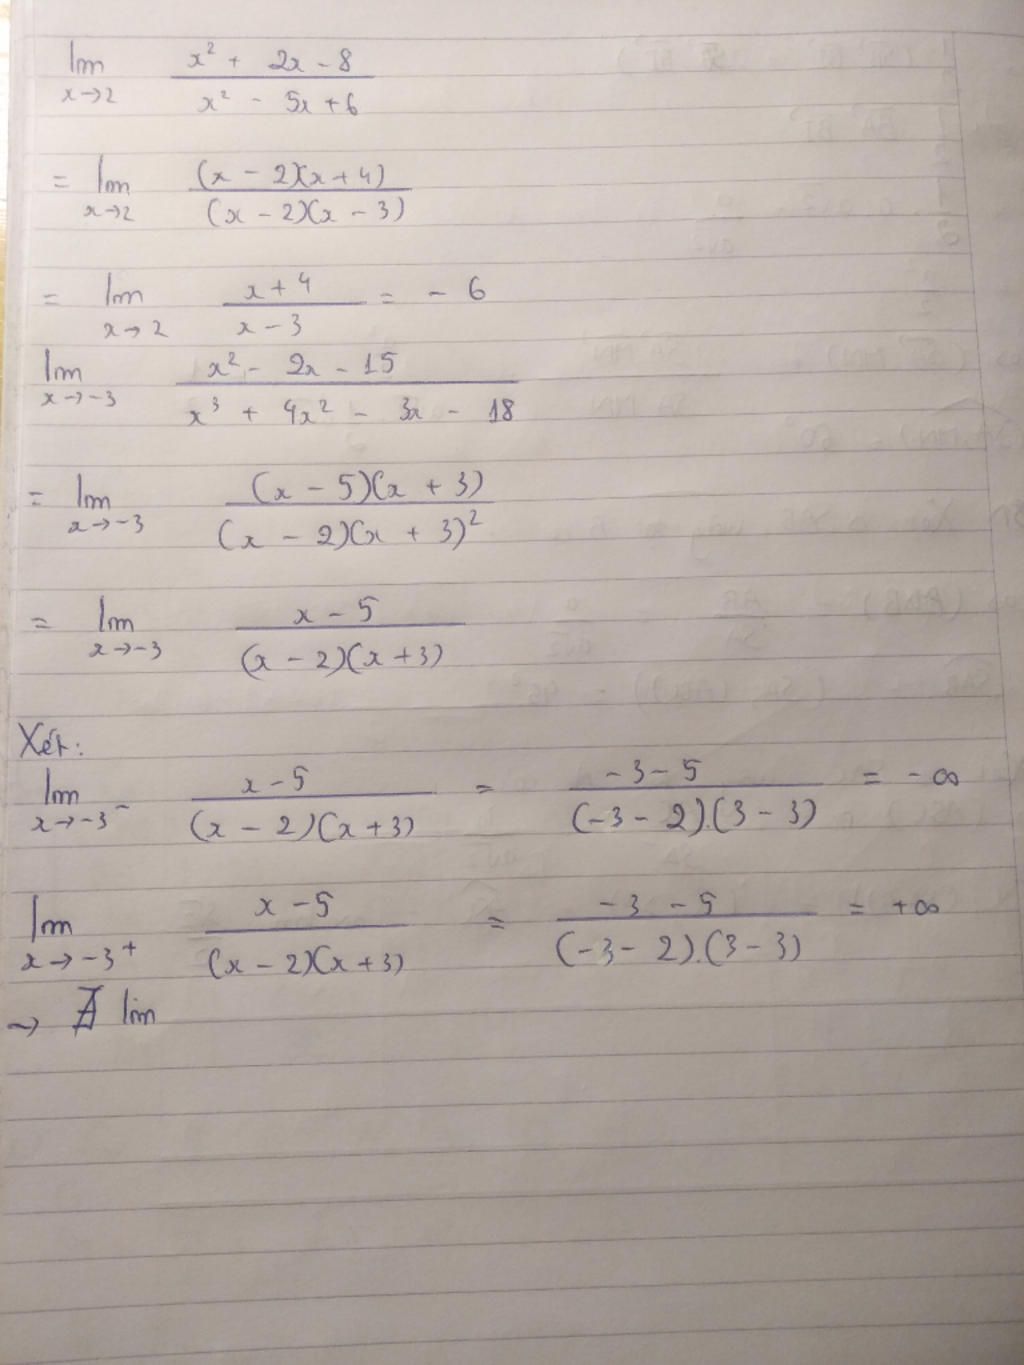 lim x→2 (x² + 2x - 8)/(x² - 5x + 6)
= lim x→2 ((x - 2)(x + 4))/((x - 2)(x - 3))
= lim x→2 (x + 4)/(x - 3) = - 6
lim x→-3 (x² - 2x - 15)/(x³ + 4x² - 3x - 18)
= lim x→-3 ((x - 5)(x + 3))/((x - 2)(x + 3)²)
= lim x→-3 (x - 5)/((x - 2)(x + 3))
Xét:
lim x→-3⁻ (x - 5)/((x - 2)(x + 3)) = (-3 - 5)/((-3 - 2).(3 - 3)) = - ∞
lim x→-3⁺ (x - 5)/((x - 2)(x + 3)) = (-3 - 5)/((-3 - 2).(3 - 3)) = +∞
→ ∄ lim